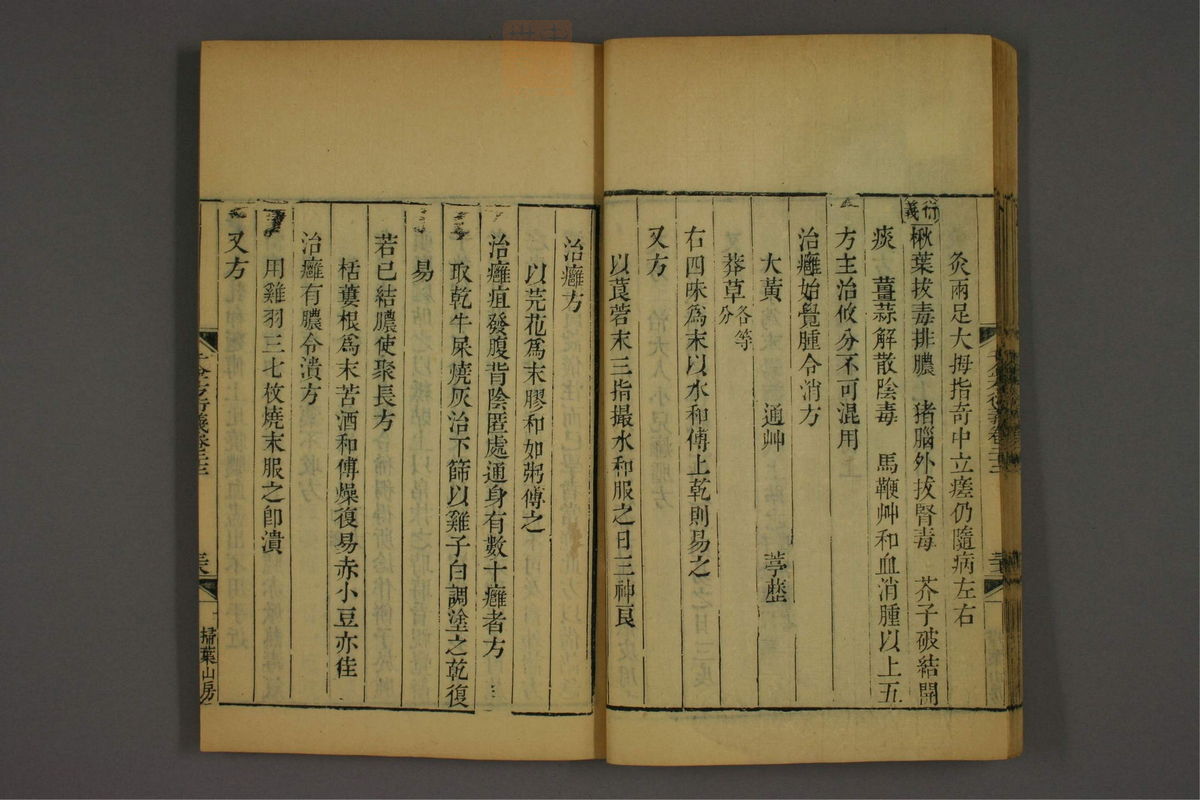 灸兩足大拇指奇中立瘥仍隨病左右
衍義
楸葉拔毒排膿 猪腦外拔腎毒 芥子破結開
痰 薑蒜解散陰毒 馬鞭艸和血消腫以上五
方主治攸分不可混用
治癰始覺腫令消方
大黃 通艸 葶藶
莽草各等分
右四味爲末以水和傅上乾則易之
又方
以莨菪末三指撮水和服之日三神良
治癰方
以芫花爲末膠和如粥傅之
治癰疽發腹背陰匿處通身有數十癰者方
取乾牛屎燒灰治下篩以雞子白調塗之乾復
易
若已結膿使聚長方
栝蔞根爲末苦酒和傅燥復易赤小豆亦佳
治癰有膿令潰方
用雞羽三七枚燒末服之卽潰
又方
千金方衍義卷二十二
掃葉山房